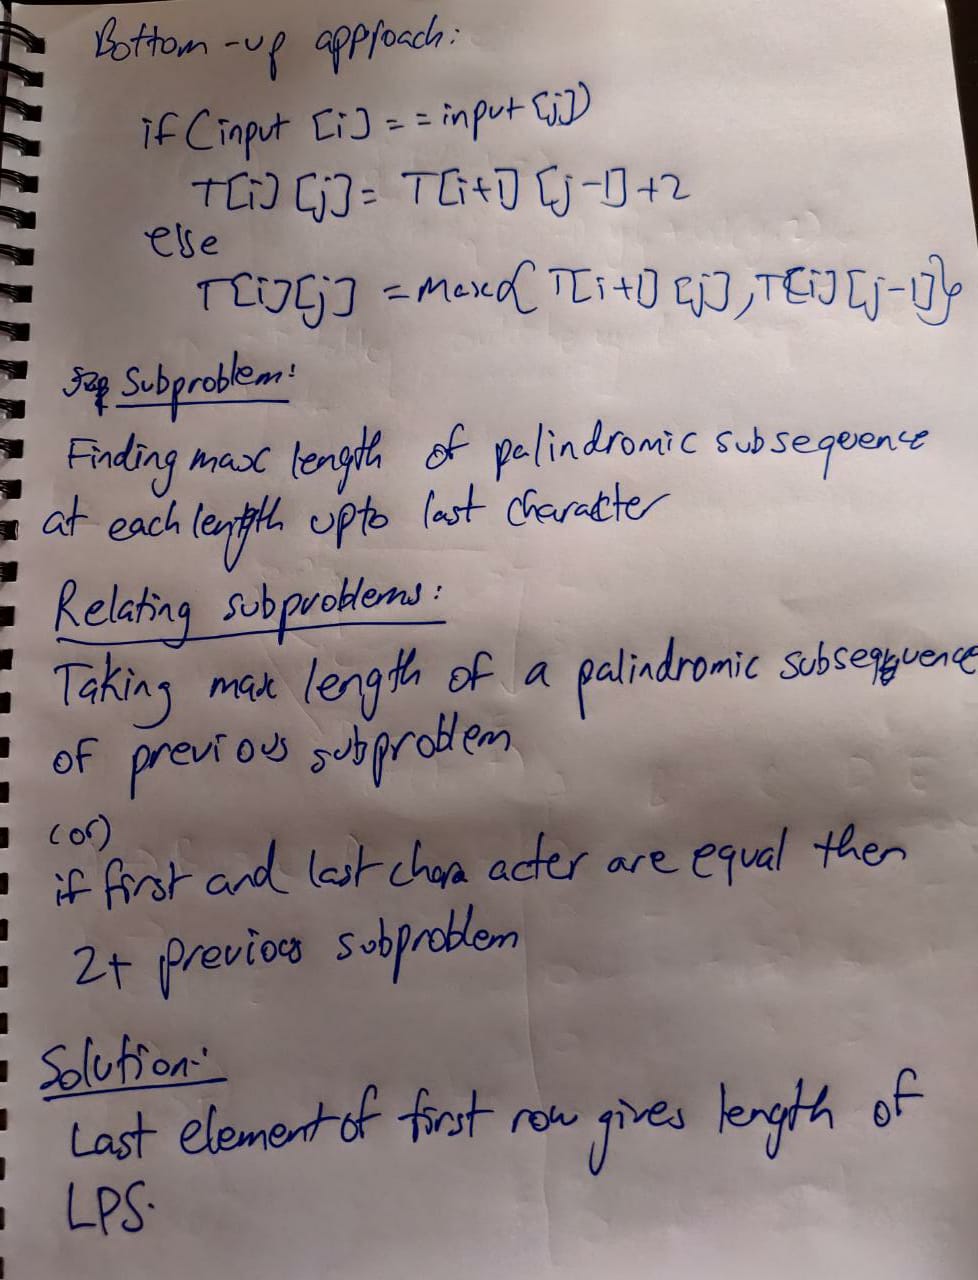 Bottom-up approach:
if (input [i] == input [j])
T[i] [j] = T[i+1] [j-1]+2
else
T[i][j] = max{ T[i+1] [j], T[i] [j-1]}
Subproblem:
Finding max length of palindromic subsequence
at each length upto last character
Relating subproblems:
Taking max length of a palindromic subsequence
of previous subproblem
(or)
if first and last chara acter are equal then
2+ previous subproblem
Solution:
Last element of first row gives length of
LPS.